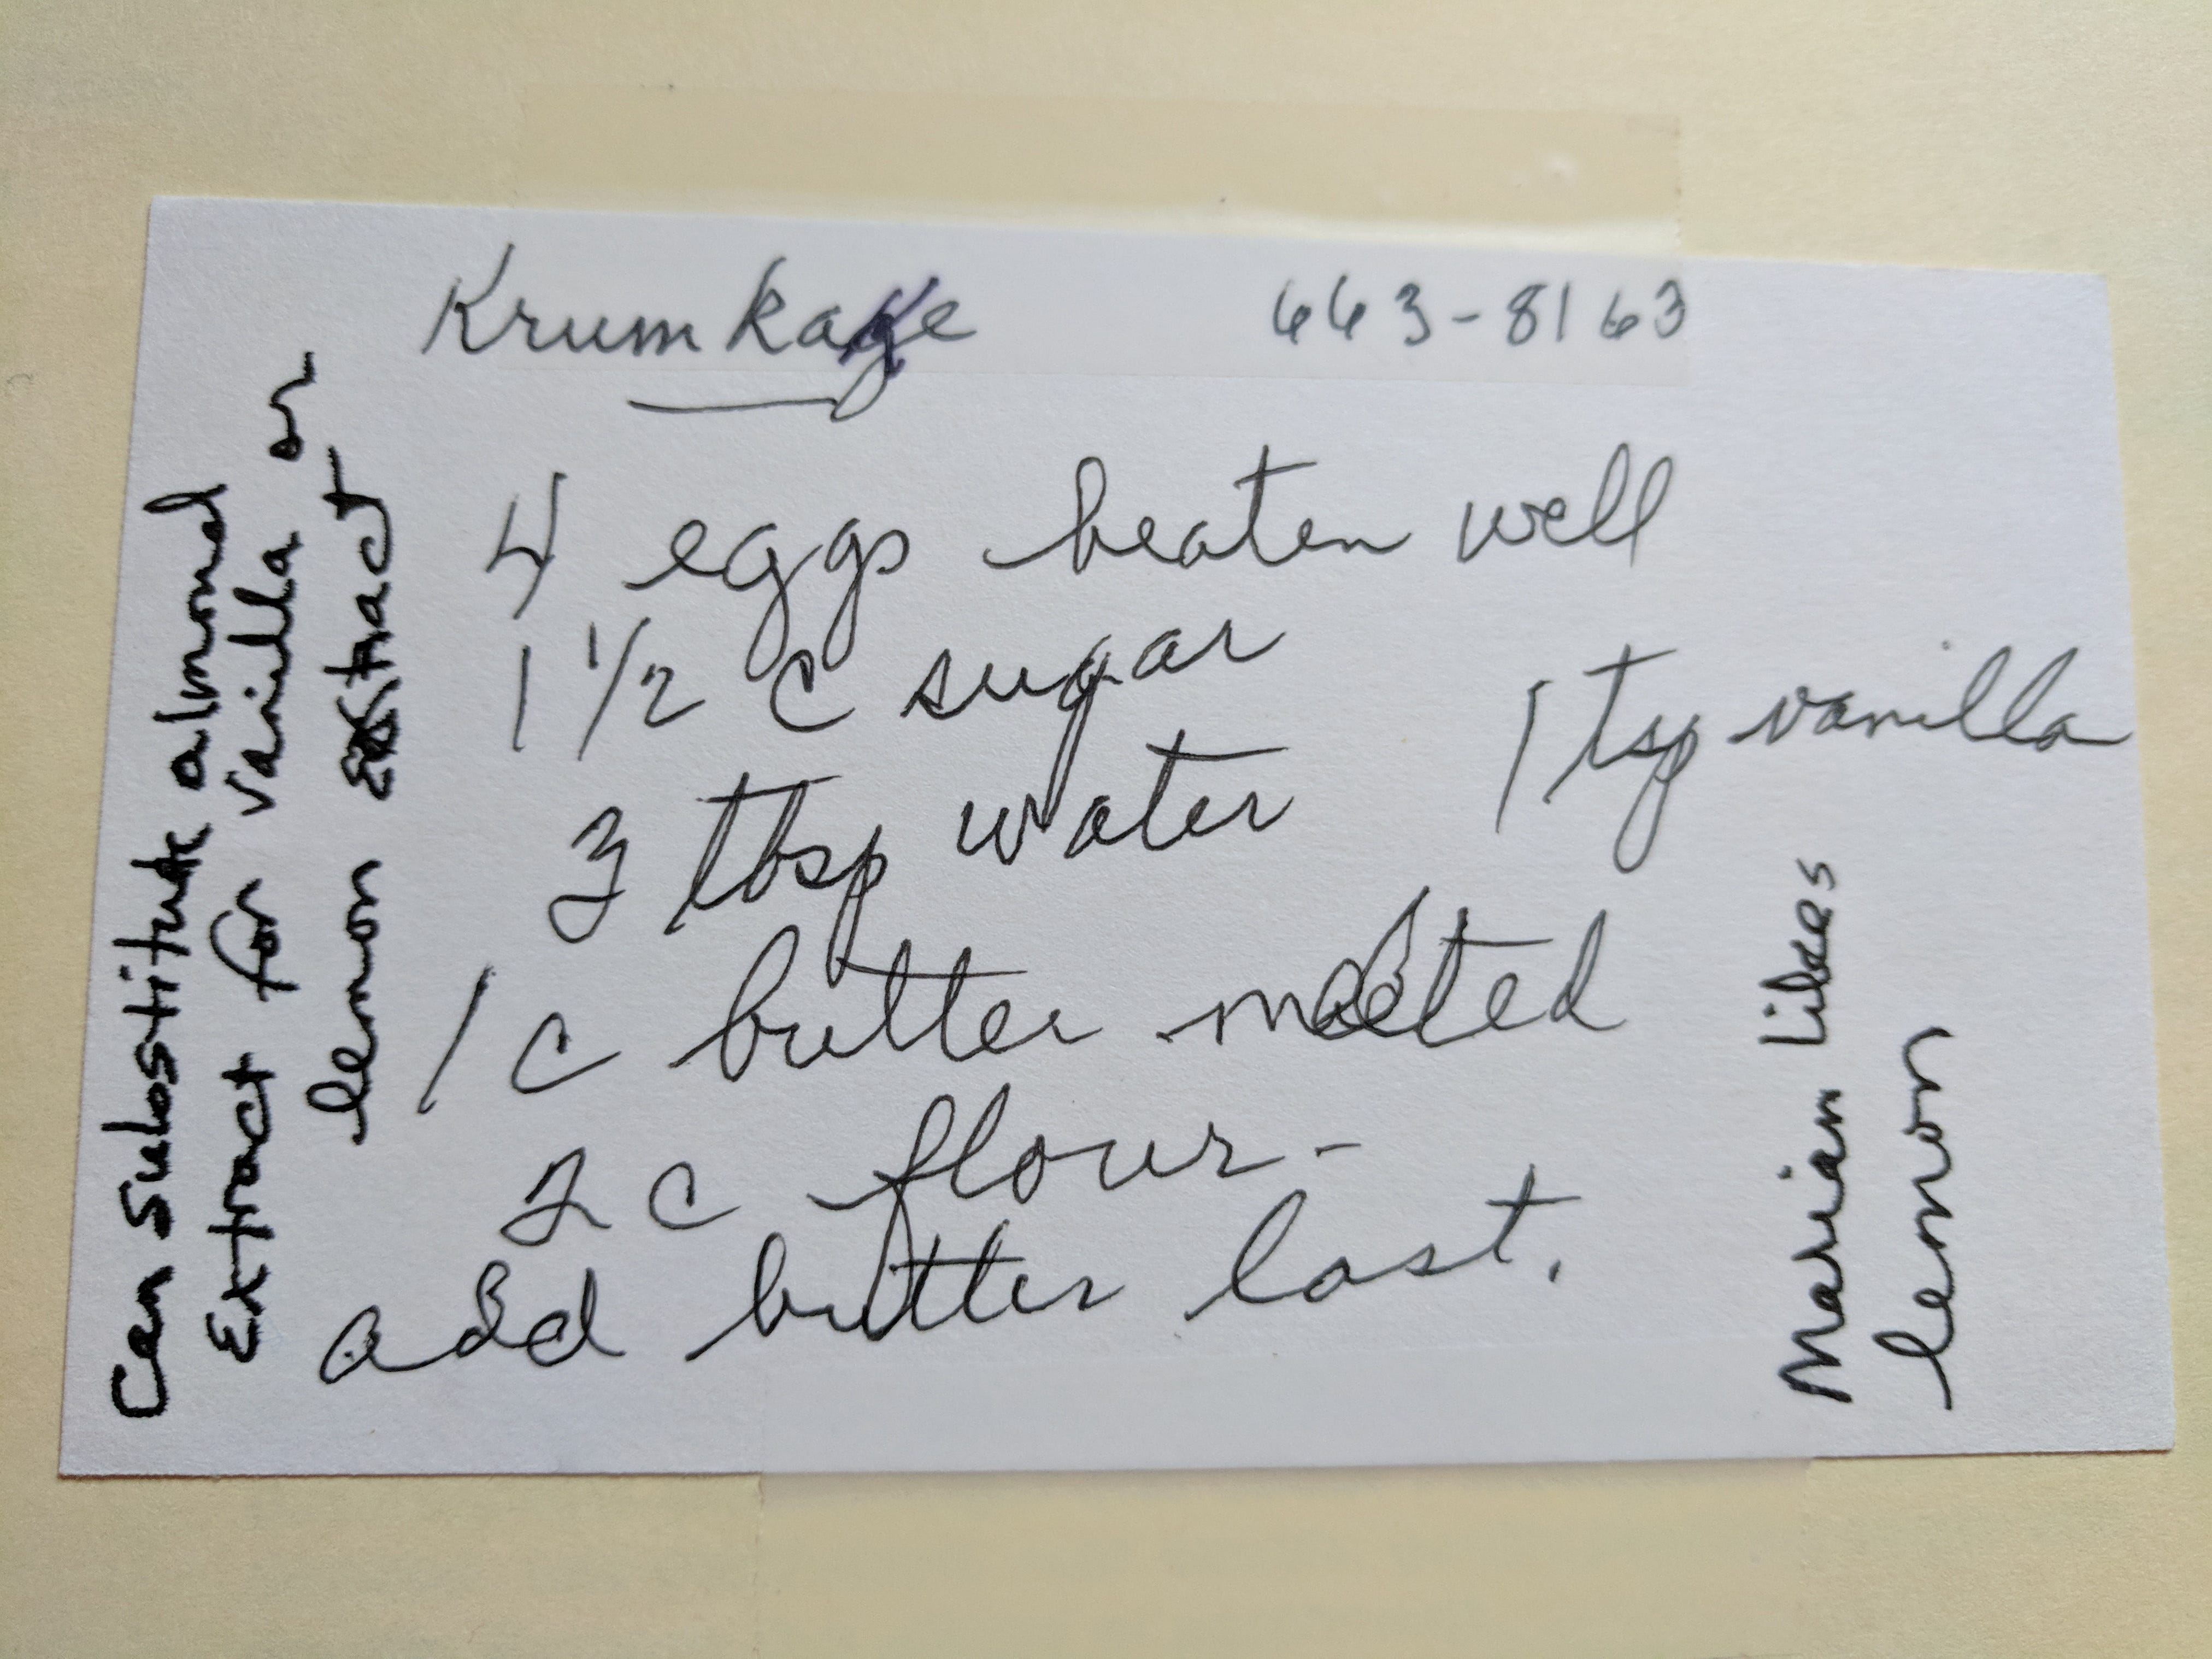 Krumkake 663-8163
4 eggs beaten well
1 1/2 c sugar
1 tsp vanilla
3 tbsp water
1 c butter melted
2 c flour -
add butter last.
Can substitute almond
Extract for vanilla or
lemon extract
Marian likes
lemon